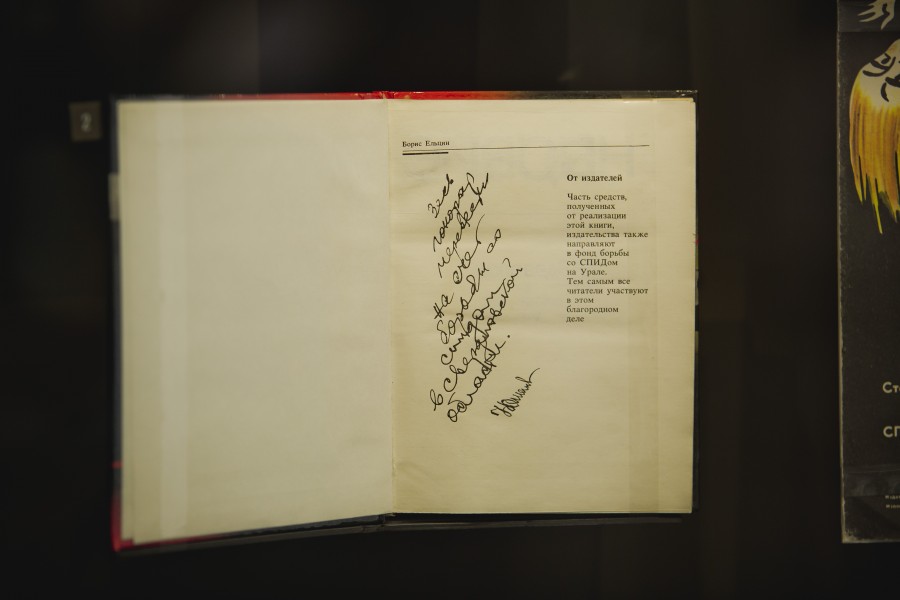 2
Борис Ельцин
Весь
гонорар
перевести
на счет
борьбы со
спидом
в свердловской
области.
От издателей
Часть средств,
полученных
от реализации
этой книги,
издательства также
направляют
в фонд борьбы
со СПИДом
на Урале.
Тем самым все
читатели участвуют
в этом
благородном
деле
Ст
СП